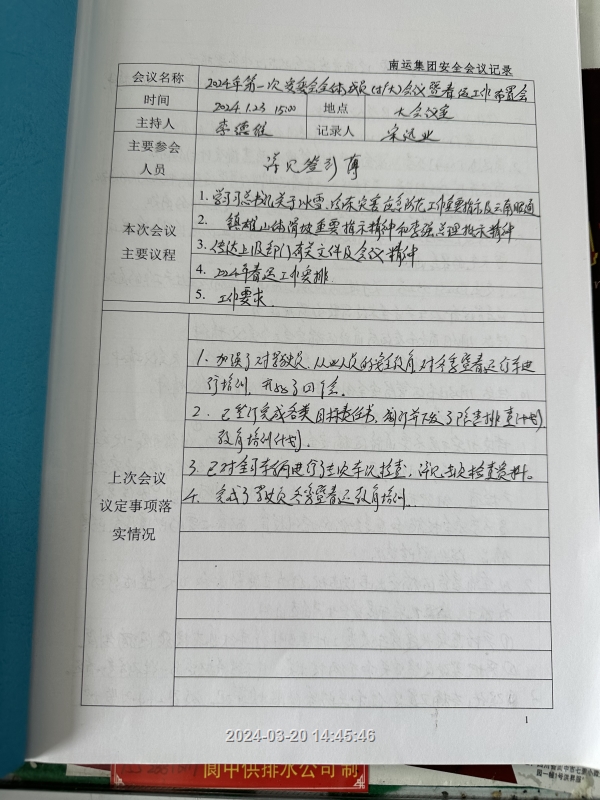 南运集团安全会议记录
会议名称 2024年第一次安委会全体成员(扩大)会议暨春运工作布置会
时间 2024.1.23 15:00 地点 大会议室
主持人 李德 记录人 宋
主要参会
人员 详见签到簿
本次会议
主要议程
1. 学习习总书记关于冰雪、冷冻灾害应急防范工作重要指示及云南昭通
2. 镇雄山体滑坡重要指示精神和李强总理批示精神
3. 传达上级部门有关文件及会议精神
4. 2024年春运工作安排
5. 工作要求
上次会议
议定事项落
实情况
1. 加强了对驾驶员、从业人员的安全教育,对冬季暨春运行车进
行培训,开始了四个会。
2. 已签订完成各类目标责任书,制订并下发了隐患排查(计划)
教育培训(计划).
3. 已对全部车辆进行了车次检查,详见车次检查资料。
4. 完成了驾驶员冬季暨春运教育培训.
1
2024-03-20 14:45:46
阆中供排水公司制